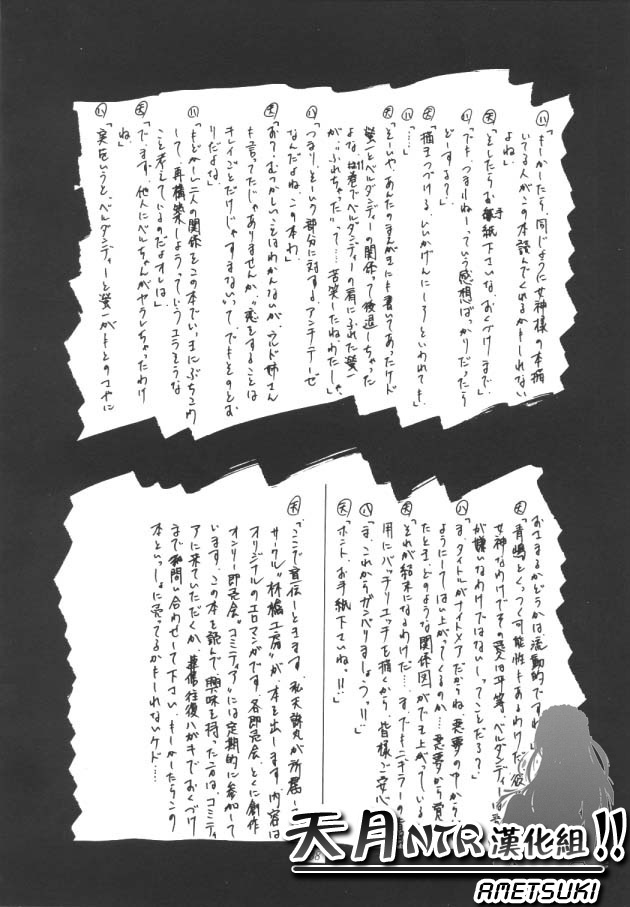 ㋩「もしかしたら、同じように女神様の本描
いてる人がこの本読んでくれるかもしれない
よね」
㋝「としたらお手紙下さいな、おくづけまで」
㋩「でも、つまんねーっていう感想ばっかりだったら
どーする?」
「描きつづける。いいかげんにしろといわれても」
「…」
「そーいや、あんたのまんがにも書いてあったケド
螢一とベルダンディーの関係って後退しちゃった
よな、巻でベルダンディーの肩にふれた螢一
が、"ふれちゃった"って…苦笑したねわたしゃ」
「つまり、そーいう部分に対するアンチテーゼ
なんだよね、この本わ」
「お?むつかしいことはわかんないが、ウルド姉さん
も言ってたじゃありませんか、"恋をすることは
キレイごとだけじゃすまない"って、でもそのとお
りだよな」
「もどかしい二人の関係をこの本でいっきにぶちこわ
して、再構築しようっていうエラそうな
こと考えているのだよオレは」
「でまず、他人にベルちゃんがヤラレちゃったわけ
ね」
「実をいうと、ベルダンディーと螢一がもとのさやに
おさまるかどうかは流動的ですね
「青嶋とくっつく可能性もあるわけだ、彼
女神なわけでその愛は平等、ベルダンディーは
が嫌いなわけではない、ってことだろ?」
「ま、タイトルがナイトメアだからね、悪夢の中から
ようにしてはい上がってくるのか…悪夢から覚
たとき、どのような関係図ができ上がっている
「それが結末になるわけだ…。
用にバッチリエッチを描くから、皆様ご安心
「ま、これからガンバりましょうっ!!」
「ホント、お手紙下さいね。!!」
「ここで宣伝しときます、私天誅丸が所属し
サークル"林檎工房"が本を出します。内容は
オリジナルのエロマンガです。各即売会、とくに創作
オンリー即売会"コミティア"には定期的に参加して
います。この本を読んで興味を持った方は、コミティ
アに来ていただくか、往復ハガキでおくづけ
まで問い合わせて下さい。もしかしたらこの
本といっしょに売ってるかもしれないケド…
天月NTR漢化組!!
AMETSUKI